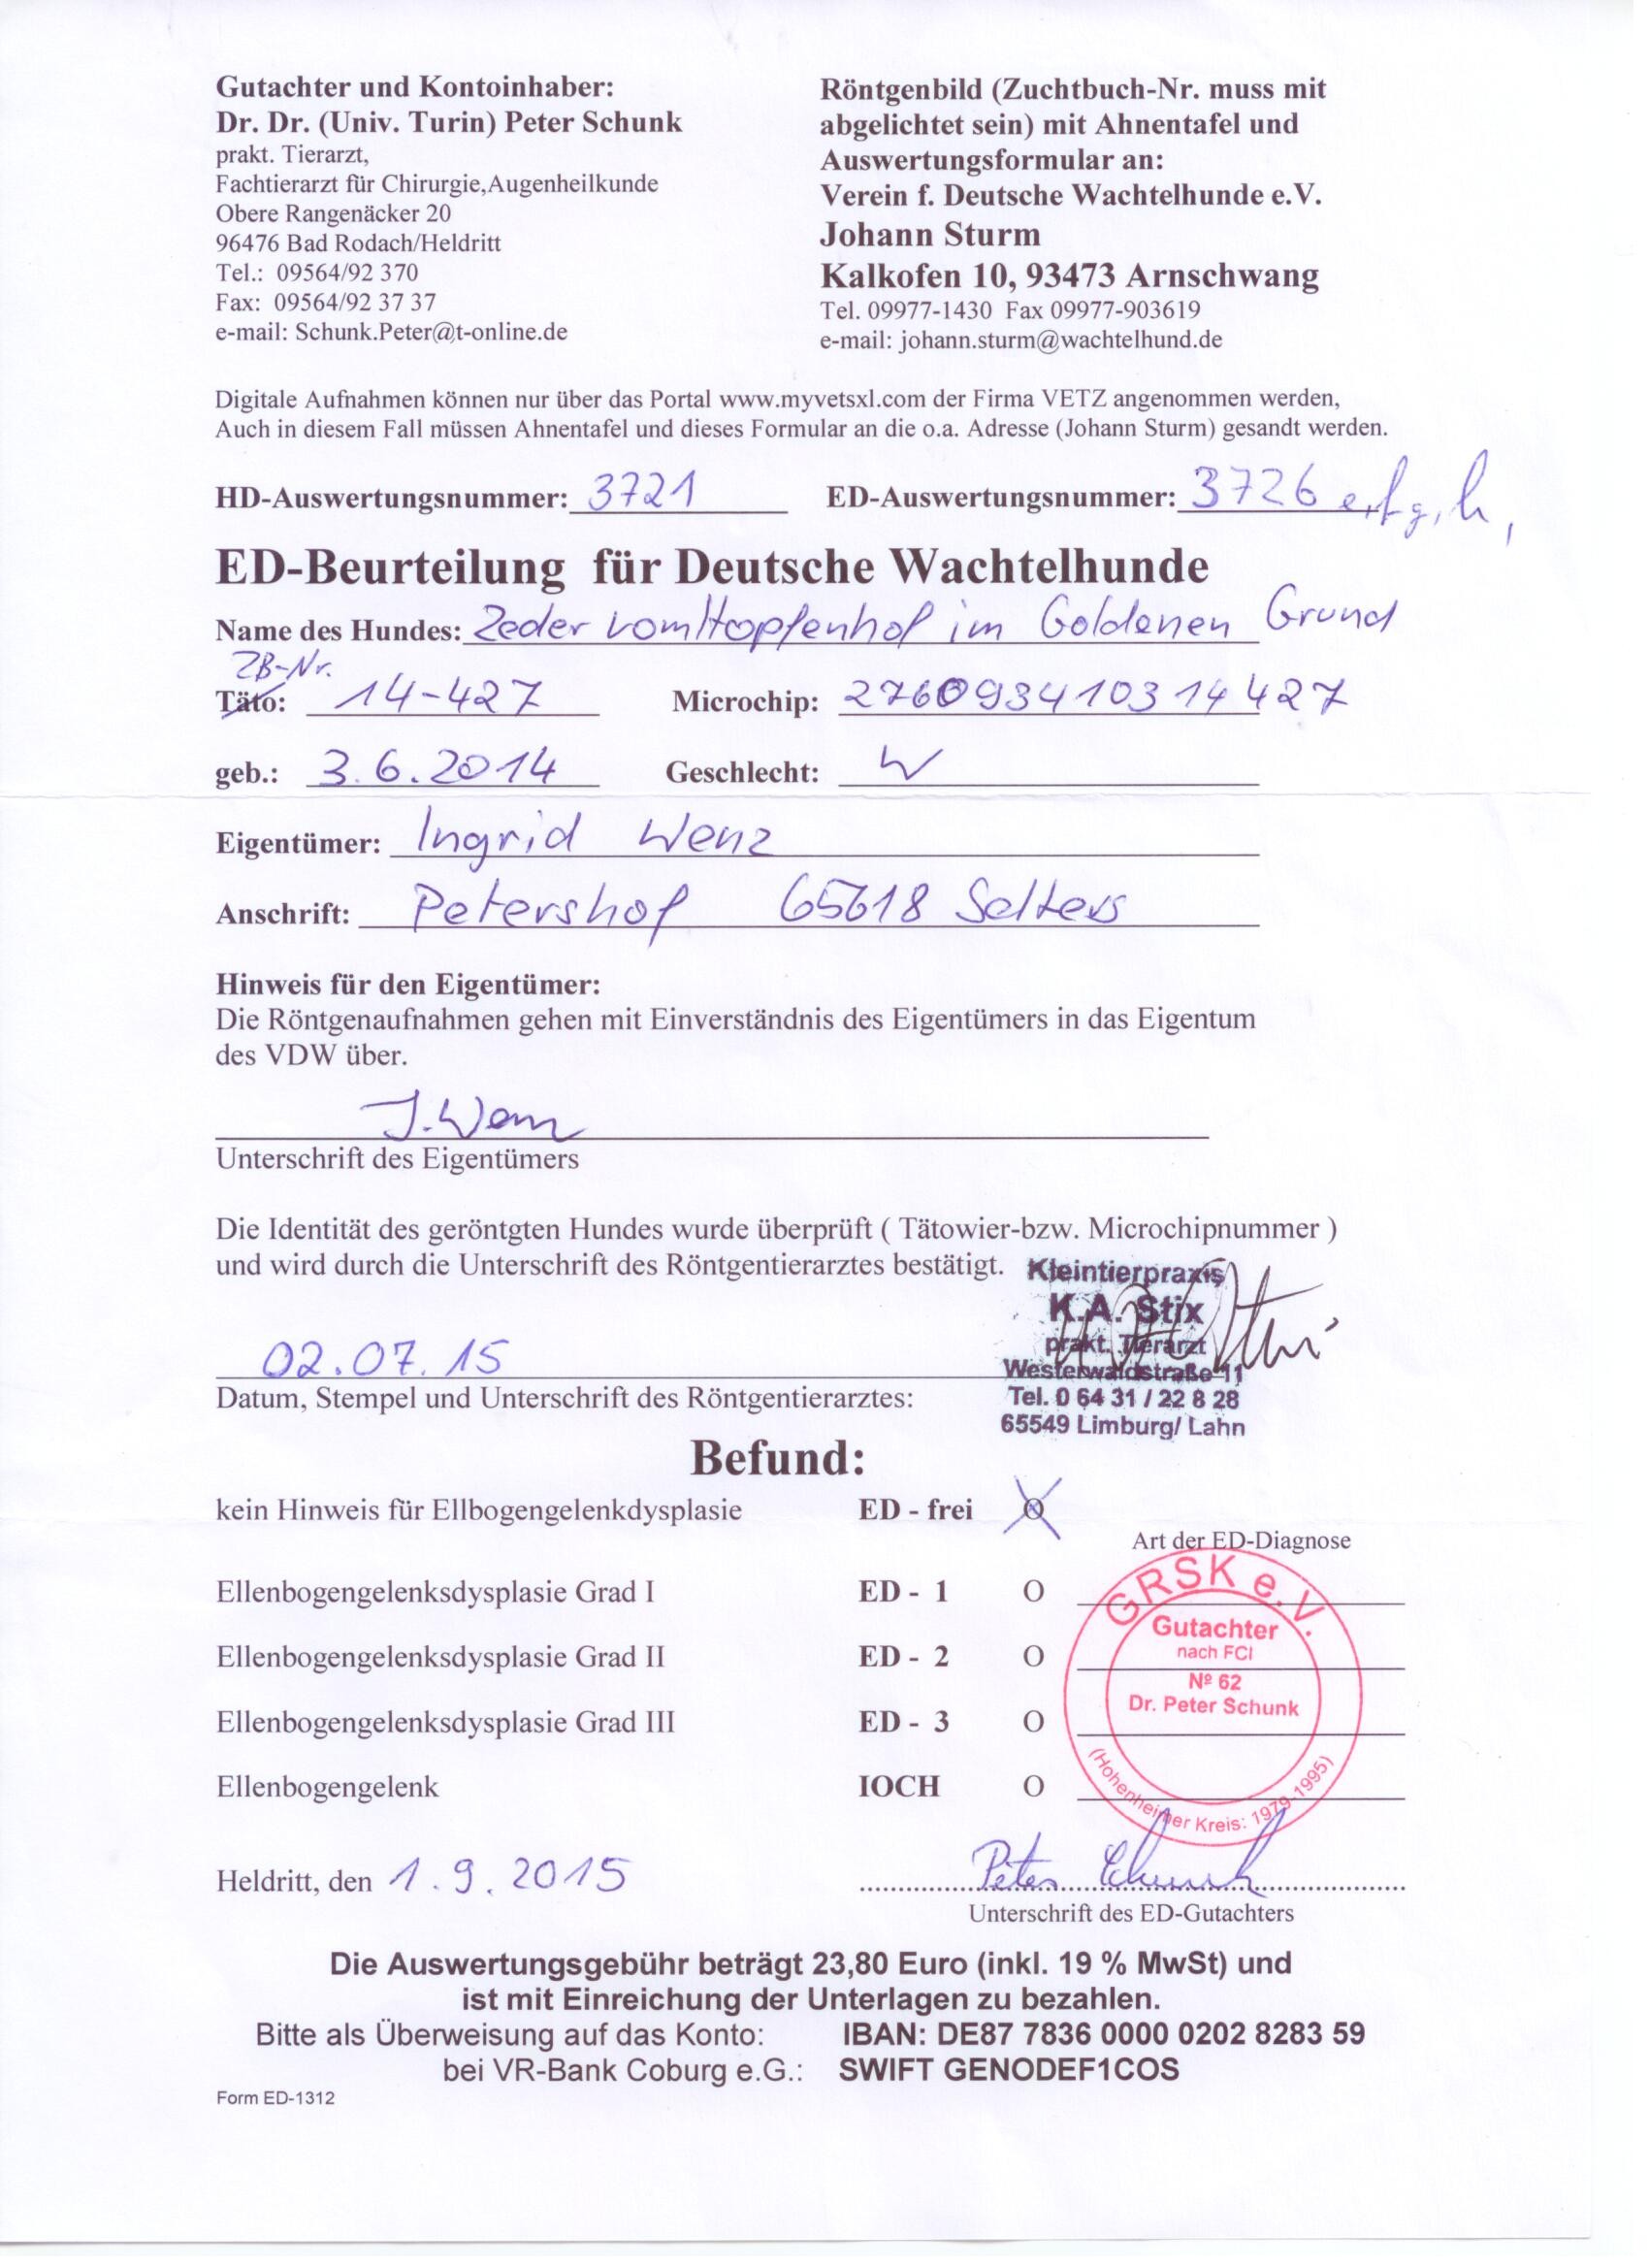 Gutachter und Kontoinhaber:
Dr. Dr. (Univ. Turin) Peter Schunk
prakt. Tierarzt,
Fachtierarzt für Chirurgie,Augenheilkunde
Obere Rangenäcker 20
96476 Bad Rodach/Heldritt
Tel.: 09564/92 370
Fax: 09564/92 37 37
e-mail: Schunk.Peter@t-online.de
Röntgenbild (Zuchtbuch-Nr. muss mit
abgelichtet sein) mit Ahnentafel und
Auswertungsformular an:
Verein f. Deutsche Wachtelhunde e.V.
Johann Sturm
Kalkofen 10, 93473 Arnschwang
Tel. 09977-1430 Fax 09977-903619
e-mail: johann.sturm@wachtelhund.de
Digitale Aufnahmen können nur über das Portal www.myvetsxl.com der Firma VETZ angenommen werden,
Auch in diesem Fall müssen Ahnentafel und dieses Formular an die o.a. Adresse (Johann Sturm) gesandt werden.
HD-Auswertungsnummer: 3721 ED-Auswertungsnummer: 3726
ED-Beurteilung für Deutsche Wachtelhunde
Name des Hundes: Zeder vom Hopfenhof im Goldenen Grund
ZB-Nr.
Täto: 14-427 Microchip: 276093410314427
geb.: 3.6.2014 Geschlecht: W
Eigentümer: Ingrid Wenz
Anschrift: Petershof 65618 Selters
Hinweis für den Eigentümer:
Die Röntgenaufnahmen gehen mit Einverständnis des Eigentümers in das Eigentum
des VDW über.
I. Wenz
Unterschrift des Eigentümers
Die Identität des geröntgten Hundes wurde überprüft ( Tätowier-bzw. Microchipnummer )
und wird durch die Unterschrift des Röntgentierarztes bestätigt.
Kleintierpraxis
K.A. Stix
prakt. Tierarzt
Westerwaldstraße 11
Tel. 0 64 31 / 22 8 28
65549 Limburg/ Lahn
02.07.15
Datum, Stempel und Unterschrift des Röntgentierarztes:
Befund:
kein Hinweis für Ellbogengelenkdysplasie ED - frei O
Art der ED-Diagnose
Ellenbogengelenksdysplasie Grad I ED - 1 O
Ellenbogengelenksdysplasie Grad II ED - 2 O
Ellenbogengelenksdysplasie Grad III ED - 3 O
Ellenbogengelenk IOCH O
GRSK e.V.
Gutachter
nach FCI
Nº 62
Dr. Peter Schunk
(Hohenheimer Kreis: 1979-1995)
Heldritt, den 1.9.2015
Peter Schunk
Unterschrift des ED-Gutachters
Die Auswertungsgebühr beträgt 23,80 Euro (inkl. 19 % MwSt) und
ist mit Einreichung der Unterlagen zu bezahlen.
Bitte als Überweisung auf das Konto: IBAN: DE87 7836 0000 0202 8283 59
bei VR-Bank Coburg e.G.: SWIFT GENODEF1COS
Form ED-1312